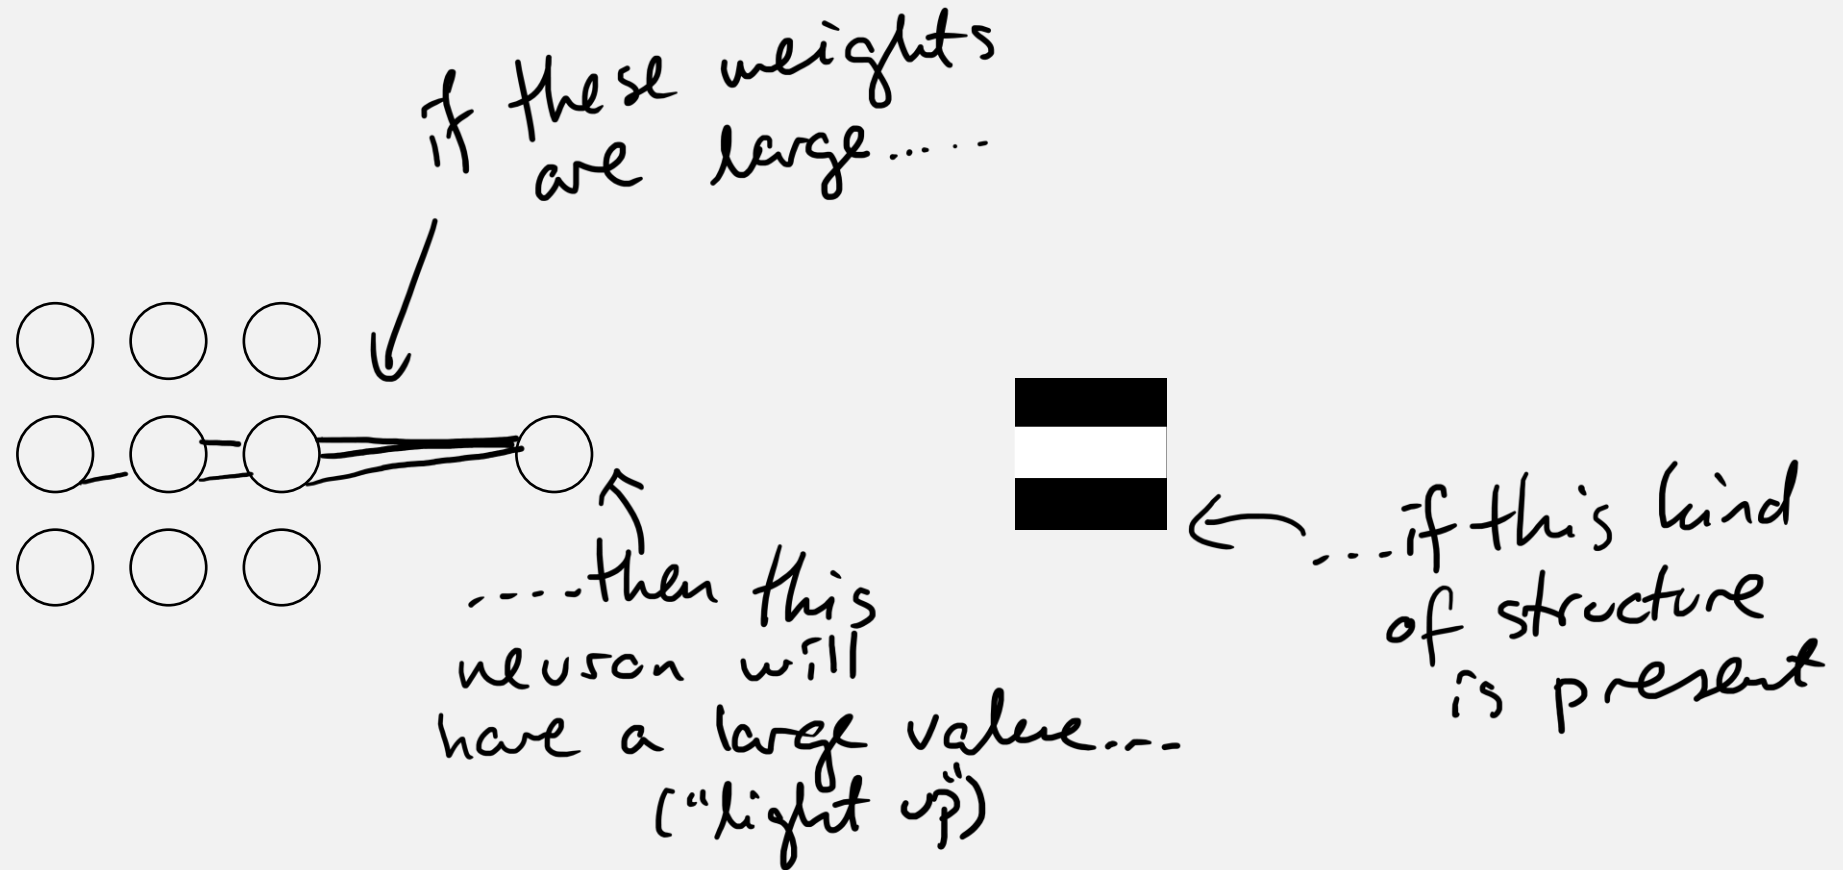 if these weights
are large.....
.....then this
neuron will
have a large value....
("light up")
....if this kind
of structure
is present